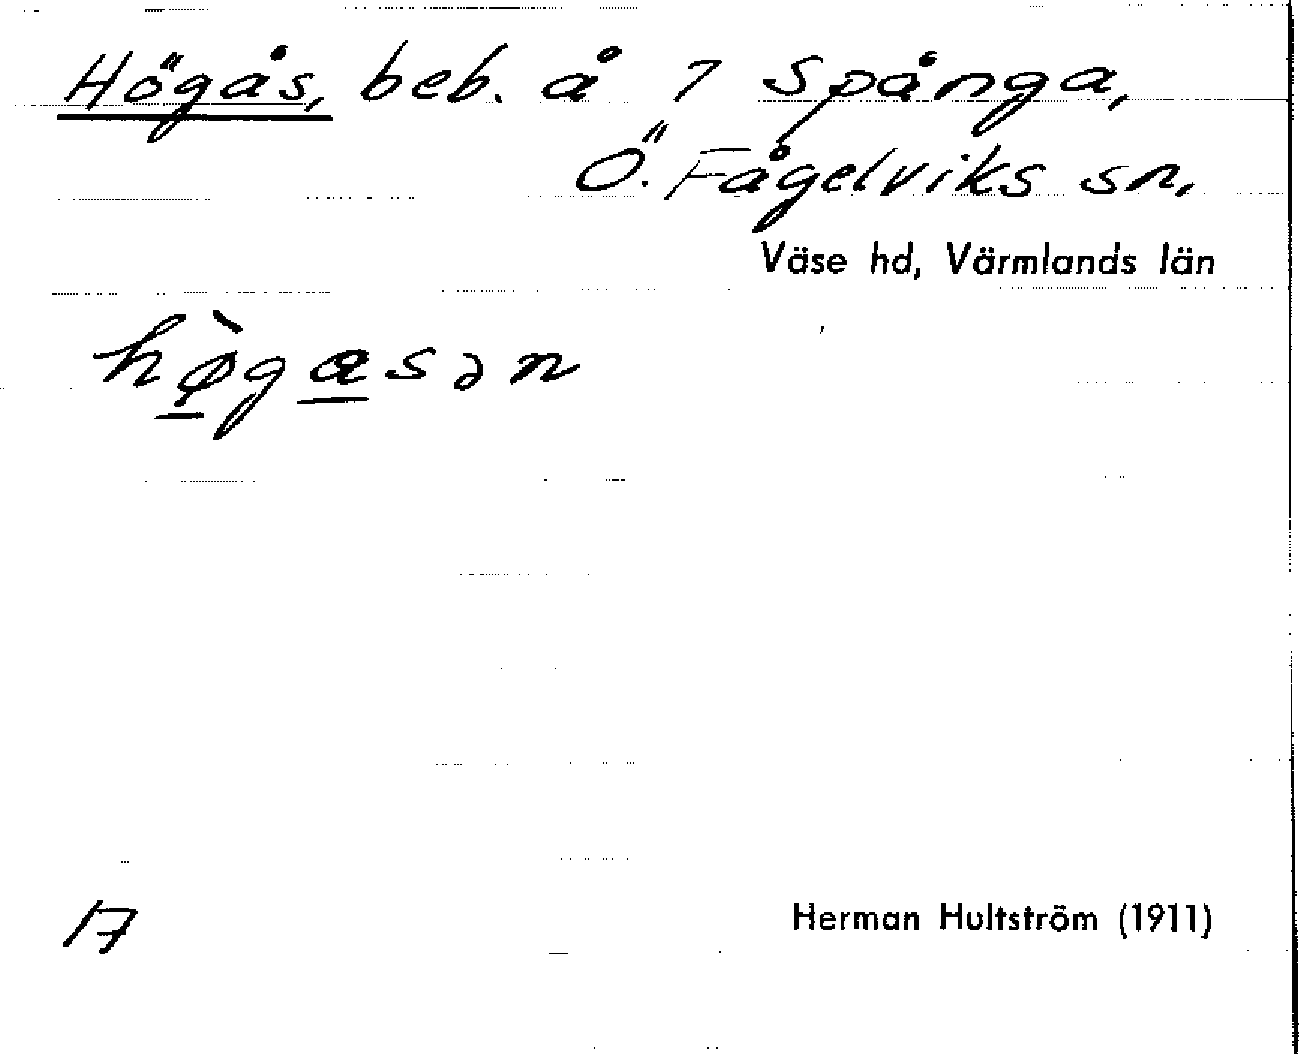 Högås, beb. å 7 Spånga,
Ö. Fågelviks sn.
Väse hd, Värmlands län
hø̀gasən
17
Herman Hultström (1911)